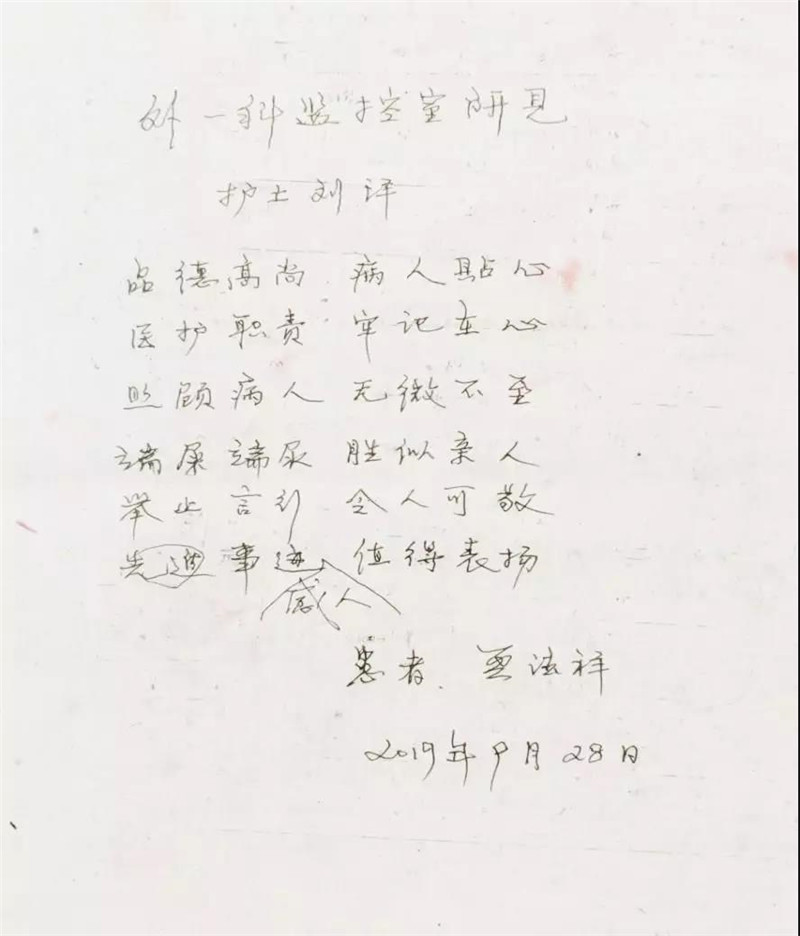 外一科监控室所见
护士刘评
品德高尚 病人贴心
医护职责 牢记在心
照顾病人 无微不至
端屎端尿 胜似亲人
举止言行 令人可敬
先进事迹 值得表扬
感人
患者 法祥
2019年9月28日